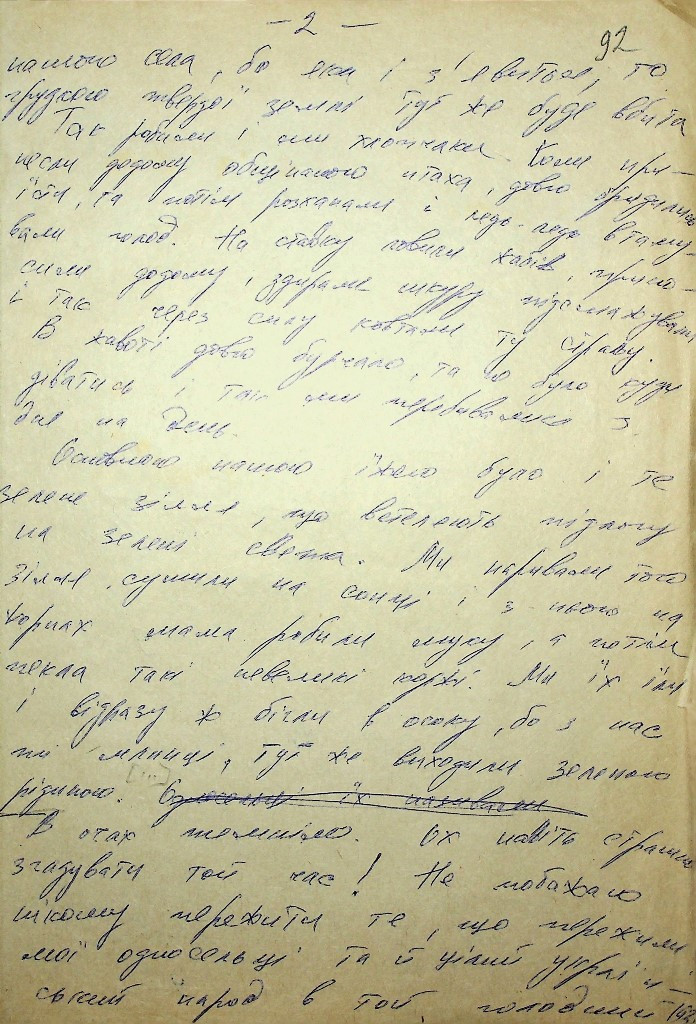 — 2 —
92
нашого села, бо як і з'явиться, то
грудкою твердої землі тут же буде вбита
Так робили і ми хлопчаки. Коли при-
несли додому общипаного птаха, довго бридились
їсти, та потім розхапали і ледь-ледь втаму-
вали голод. На ставку ловили жабів, прино-
сили додому, здирали шкуру підсмажували
і так через силу ковтали ту страву.
В животі довго бурчало, та що було куди
діватись і так ми перебивались з
дня на день.
Основною нашою їжею було і те
зелене зілля, що встеляють підлогу
на зелені свята. Ми наривали того
зілля, сушили на сонці і з нього на
жорнах мама робили муку, а потім
пекла такі невеликі коржі. Ми їх їли
і відразу ж бігли в осоку, бо з нас
ті млинці, тут же виходили зеленою
[...]
рідиною. Односельці їх називали
В очах темніло. Ох навіть страшно
згадувати той час! Не побажаю
нікому пережити те, що пережили
мої односельці та й цілий україн-
ський народ в той голодний